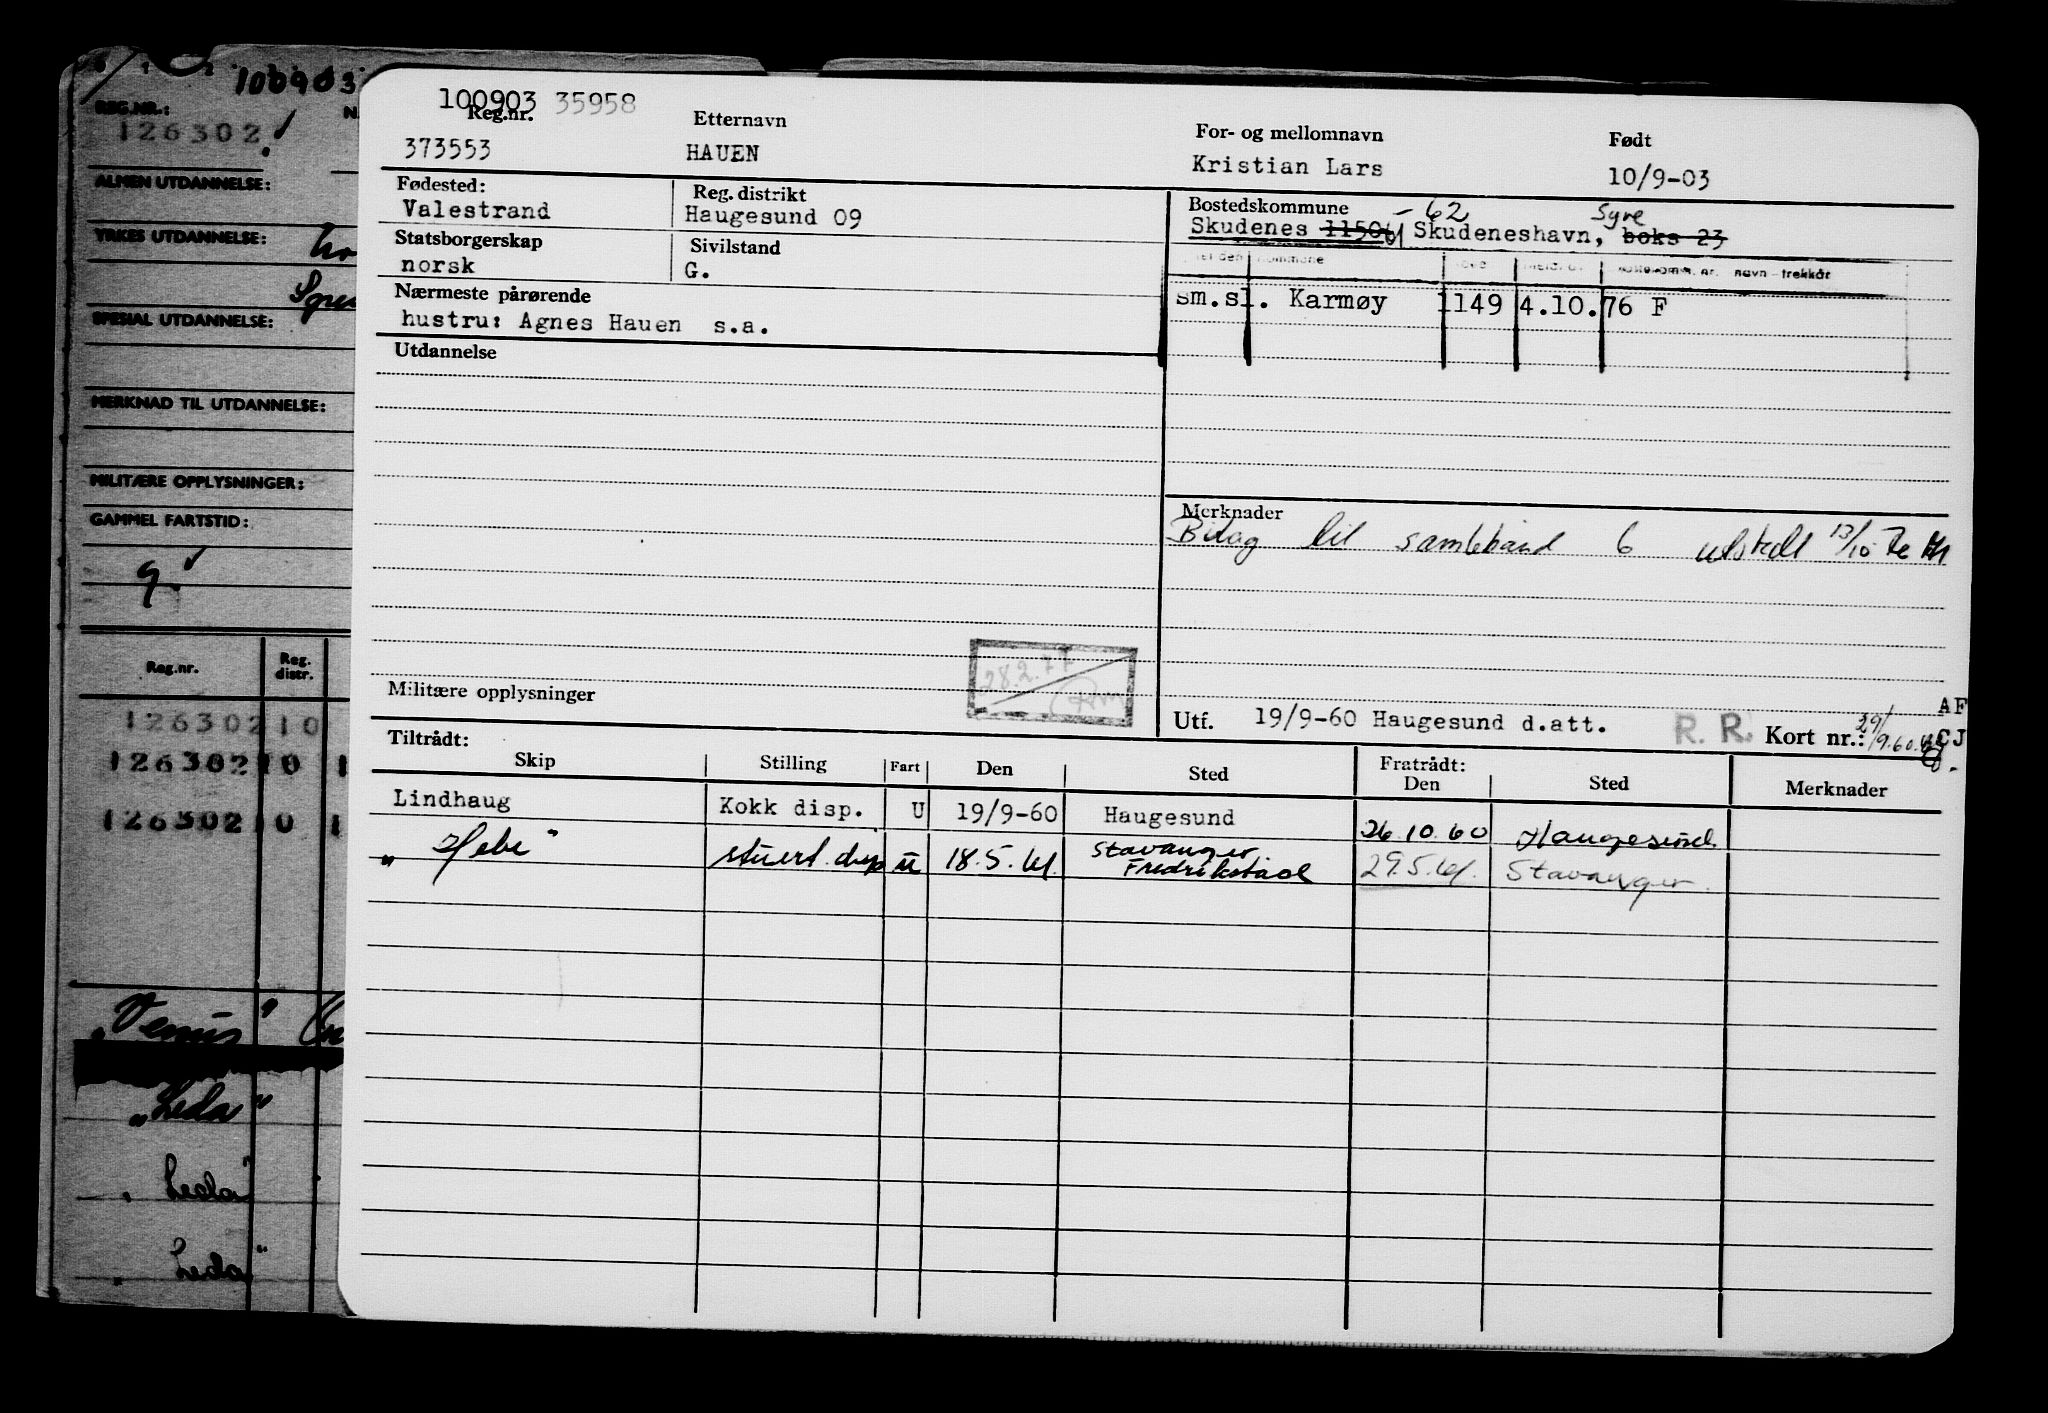 100903
REG.NR.:
126302
ALMEN UTDANNELSE:
YRKES UTDANNELSE:
SPESIAL UTDANNELSE:
MERKNAD TIL UTDANNELSE:
MILITÆRE OPPLYSNINGER:
GAMMEL FARTSTID:
9.
Reg.nr. Reg. distr.
126302 10
126302 10 1
126302 10 1
„Venus"
„Leda"
„Leda"
„Leda"
100903 35958
Reg.nr. Etternavn For- og mellomnavn Født
373553 HAUEN Kristian Lars 10/9-03
Fødested: Reg. distrikt Bostedskommune - 62 Syre
Valestrand Haugesund 09 Skudenes 1150 Skudeneshavn, boks 23
Statsborgerskap Sivilstand
norsk G.
navn - trekkår
Nærmeste pårørende sm.sl. Karmøy 1149 4.10.76 F
hustru: Agnes Hauen s.a.
Utdannelse
Merknader
Bilag til sambebånd 6 utstedt 13/10
28.2.77
Militære opplysninger
AF
Utf. 19/9-60 Haugesund d.att. R. R. Kort nr.: 29/9.60. CJ
Tiltrådt: Fratrådt:
Skip Stilling Fart Den Sted Den Sted Merknader
Lindhaug Kokk disp. U 19/9-60 Haugesund 26.10.60 Haugesund.
„Hebe" stuert. disp u 18.5.61. Stavanger Fredrikstad 29.5.61. Stavanger.